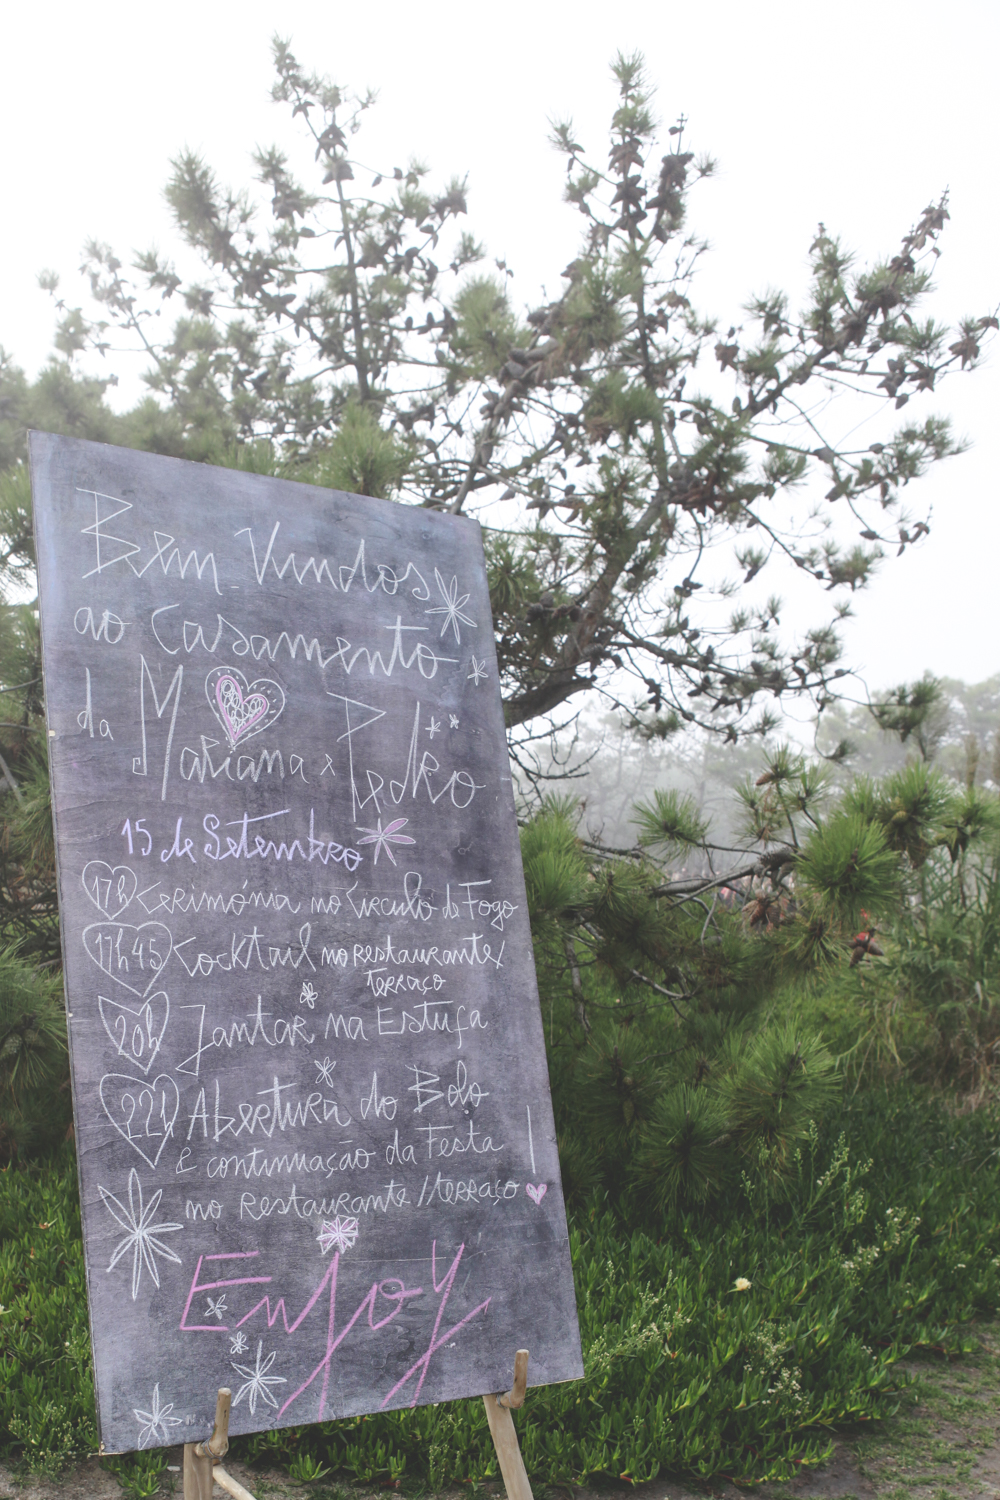 Bem Vindos
ao Casamento
da Mariana x Pedro
15 de Setembro
17h Cerimónia no Círculo de Fogo
17h45 Cocktail no restaurante/
terraço
20h Jantar na Estufa
22h Abertura do Bolo
& continuação da Festa
no restaurante//terraço!
Enjoy